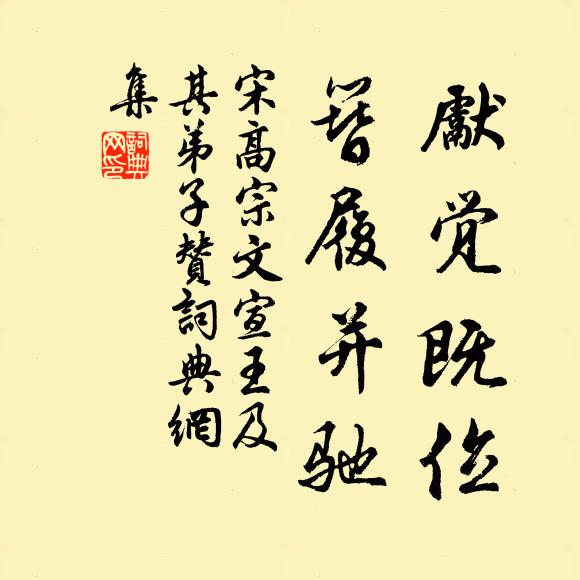 獻觉既位
簪履并驰
宋高宗文宣王及
其弟子贊詞典網
集
詞典
网印